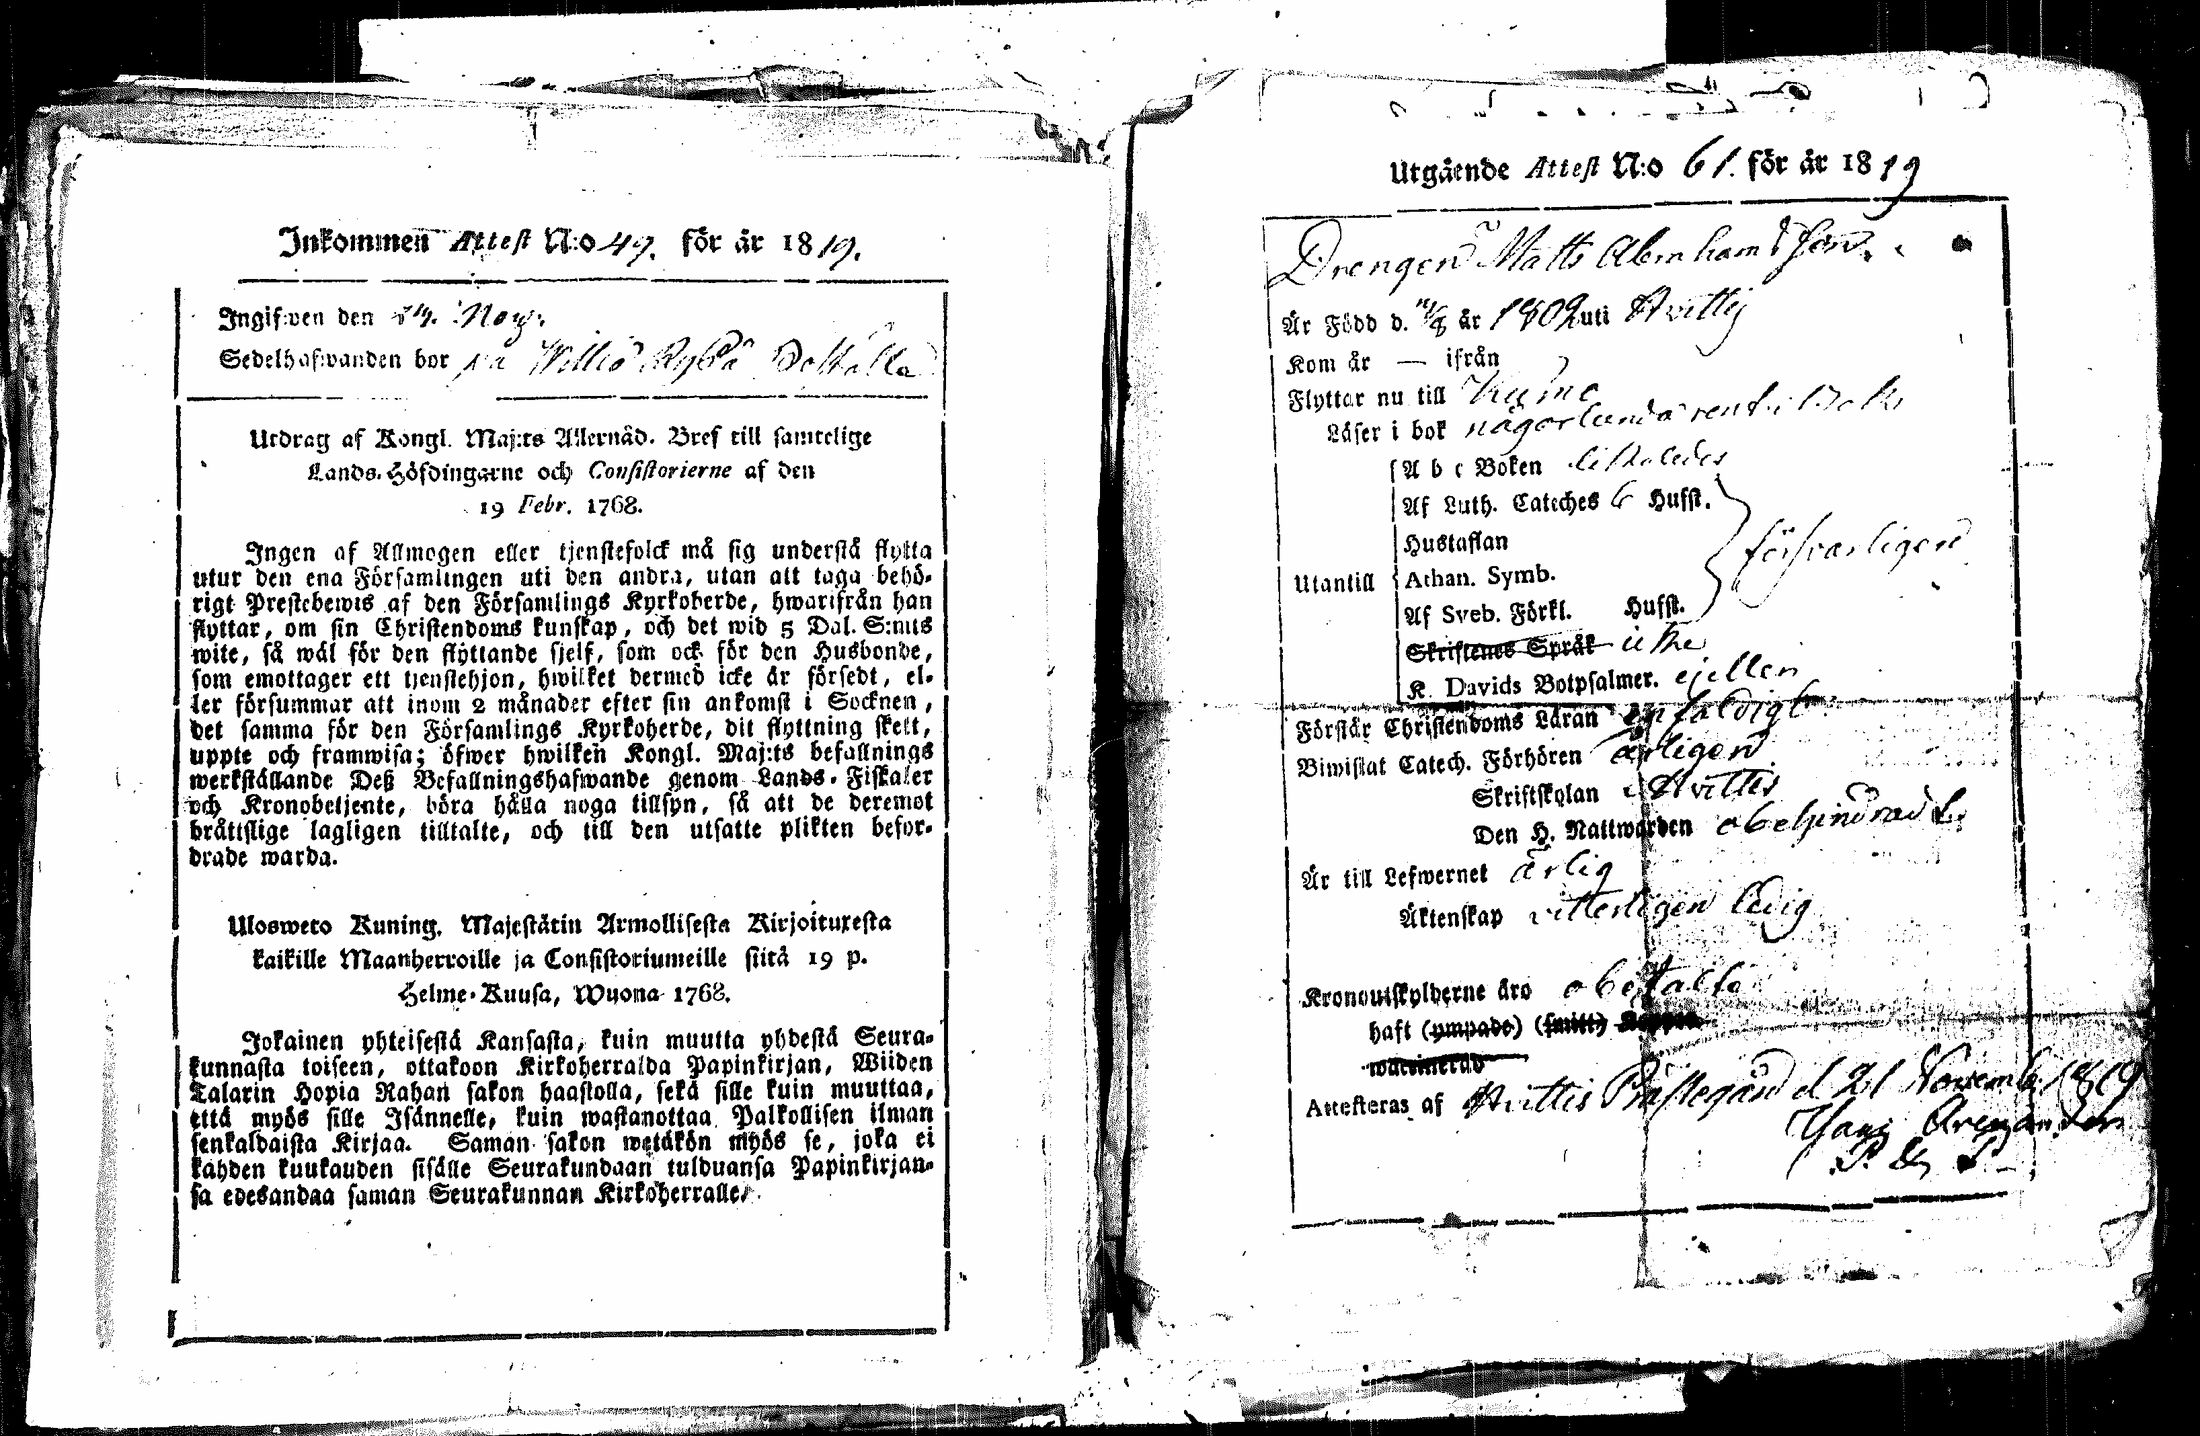 Inkommen Attest N:o 49. för år 1819.
Ingifwen den 24. Nov.
Sedelhafwanden bor på
Utdrag af Kongl. Maj:ts Allernåd. Bref till samtelige
Lands-Höfdingarne och Consistorierne af den
19 Febr. 1768.
Ingen af Allmogen eller tjenstefolck må sig understå flytta
utur den ena Församlingen uti den andra, utan att taga behö-
rigt Prestebewis af den Församlings Kyrkoherde, hwarifrån han
flyttar, om sin Christendoms kunskap, och det wid 5 Dal. S:mts
wite, så wäl för den flyttande sjelf, som ock för den Husbonde,
som emottager ett tjenstehjon, hwilket dermed icke är försedt, el-
ler försummar att inom 2 månader efter sin ankomst i Socknen,
det samma för den Församlings Kyrkoherde, dit flyttning skett,
uppte och framwisa; öfwer hwilken Kongl. Maj:ts befallnings
werkställande Deß Befallningshafwande genom Lands-Fiskaler
och Kronobetjente, böra hålla noga tillsyn, så att de deremot
bråttslige lagligen tilltalte, och till den utsatte plikten befor-
drade warda.
Ulosweto Kuning. Majestätin Armollisesta Kirjoituxesta
kaikille Maanherroille ja Consistoriumeille siitä 19 p.
Helme-Kuusa, Wuona 1768.
Jokainen yhteisestä Kansasta, kuin muutta yhdestä Seura-
kunnasta toiseen, ottakoon Kirkoherralda Papinkirjan, Wiiden
Talarin Hopia Rahan sakon haastolla, sekä sille kuin muuttaa,
että myös sille Isännelle, kuin wastanottaa Palkollisen ilman
senkaldaista Kirjaa. Saman sakon wetäkön myös se, joka ei
kahden kuukauden sisälle Seurakundaan tulduansa Papinkirjan-
sa edesandaa saman Seurakunnan Kirkoherralle.
Utgående Attest N:o 61. för år 1819
Drengen Matts Abrahamsson.
Är Född d. år 1802 uti Hvittis
Kom år — ifrån
Flyttar nu till Kumo
Läser i bok någorlunda rent i bok
A b c Boken likaledes
Af Luth. Cateches 6 Hufst.
Hustaflan
försvarligen
Utantill Athan. Symb.
Af Sveb. Förkl. Hufst.
Skriftenes Språk icke
K. Davids Botpsalmer. ejeller
Förstår Christendoms Läran enfaldigt
Biwistat Catech. Förhören årligen
Skriftskolan i Hvittis
Den H. Nattwarden obehindrad
Är till Lefwernet ärlig
Äktenskap vitterligen ledig
Kronoutskylderne äro obetalte
haft (ympade) (smitt) Koppor
waccinerad
Attesteras af Hvittis Prästegård d 21 Novemb. 1819